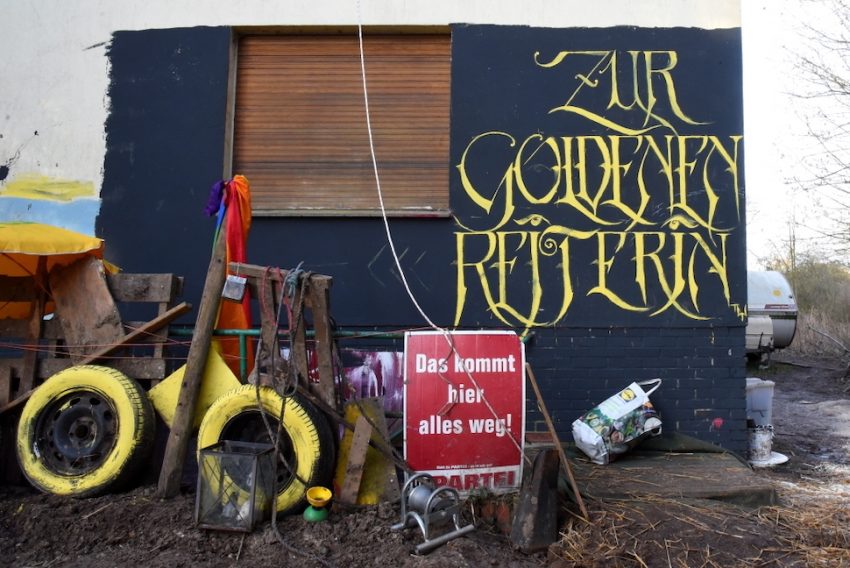 ZUR
GOLDENEN
REITERIN
Das kommt
hier
alles weg!
PARTEI